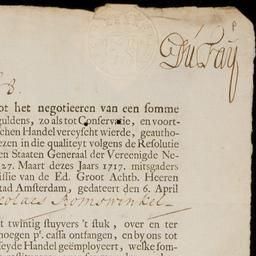 Du Fay
8.
ot het negotieeren van een somme
guldens, zo als tot Conservatie, en voort-
schen Handel vereyscht wierde, geautho-
ezen in die qualiteyt volgens de Resolutie
en Staaten Generaal der Vereenigde Ne-
27. Maart dezes Jaars 1717. mitsgaders
issie van de Ed. Groot Achtb. Heeren
tad Amsterdam, gedateert den 6. April
icolaes Romswinkel
t twintig stuyvers 't stuk, over en ter
noegen pr. cassa ontfangen, en by ons tot
seyde Handel geëmployeert, welke som-